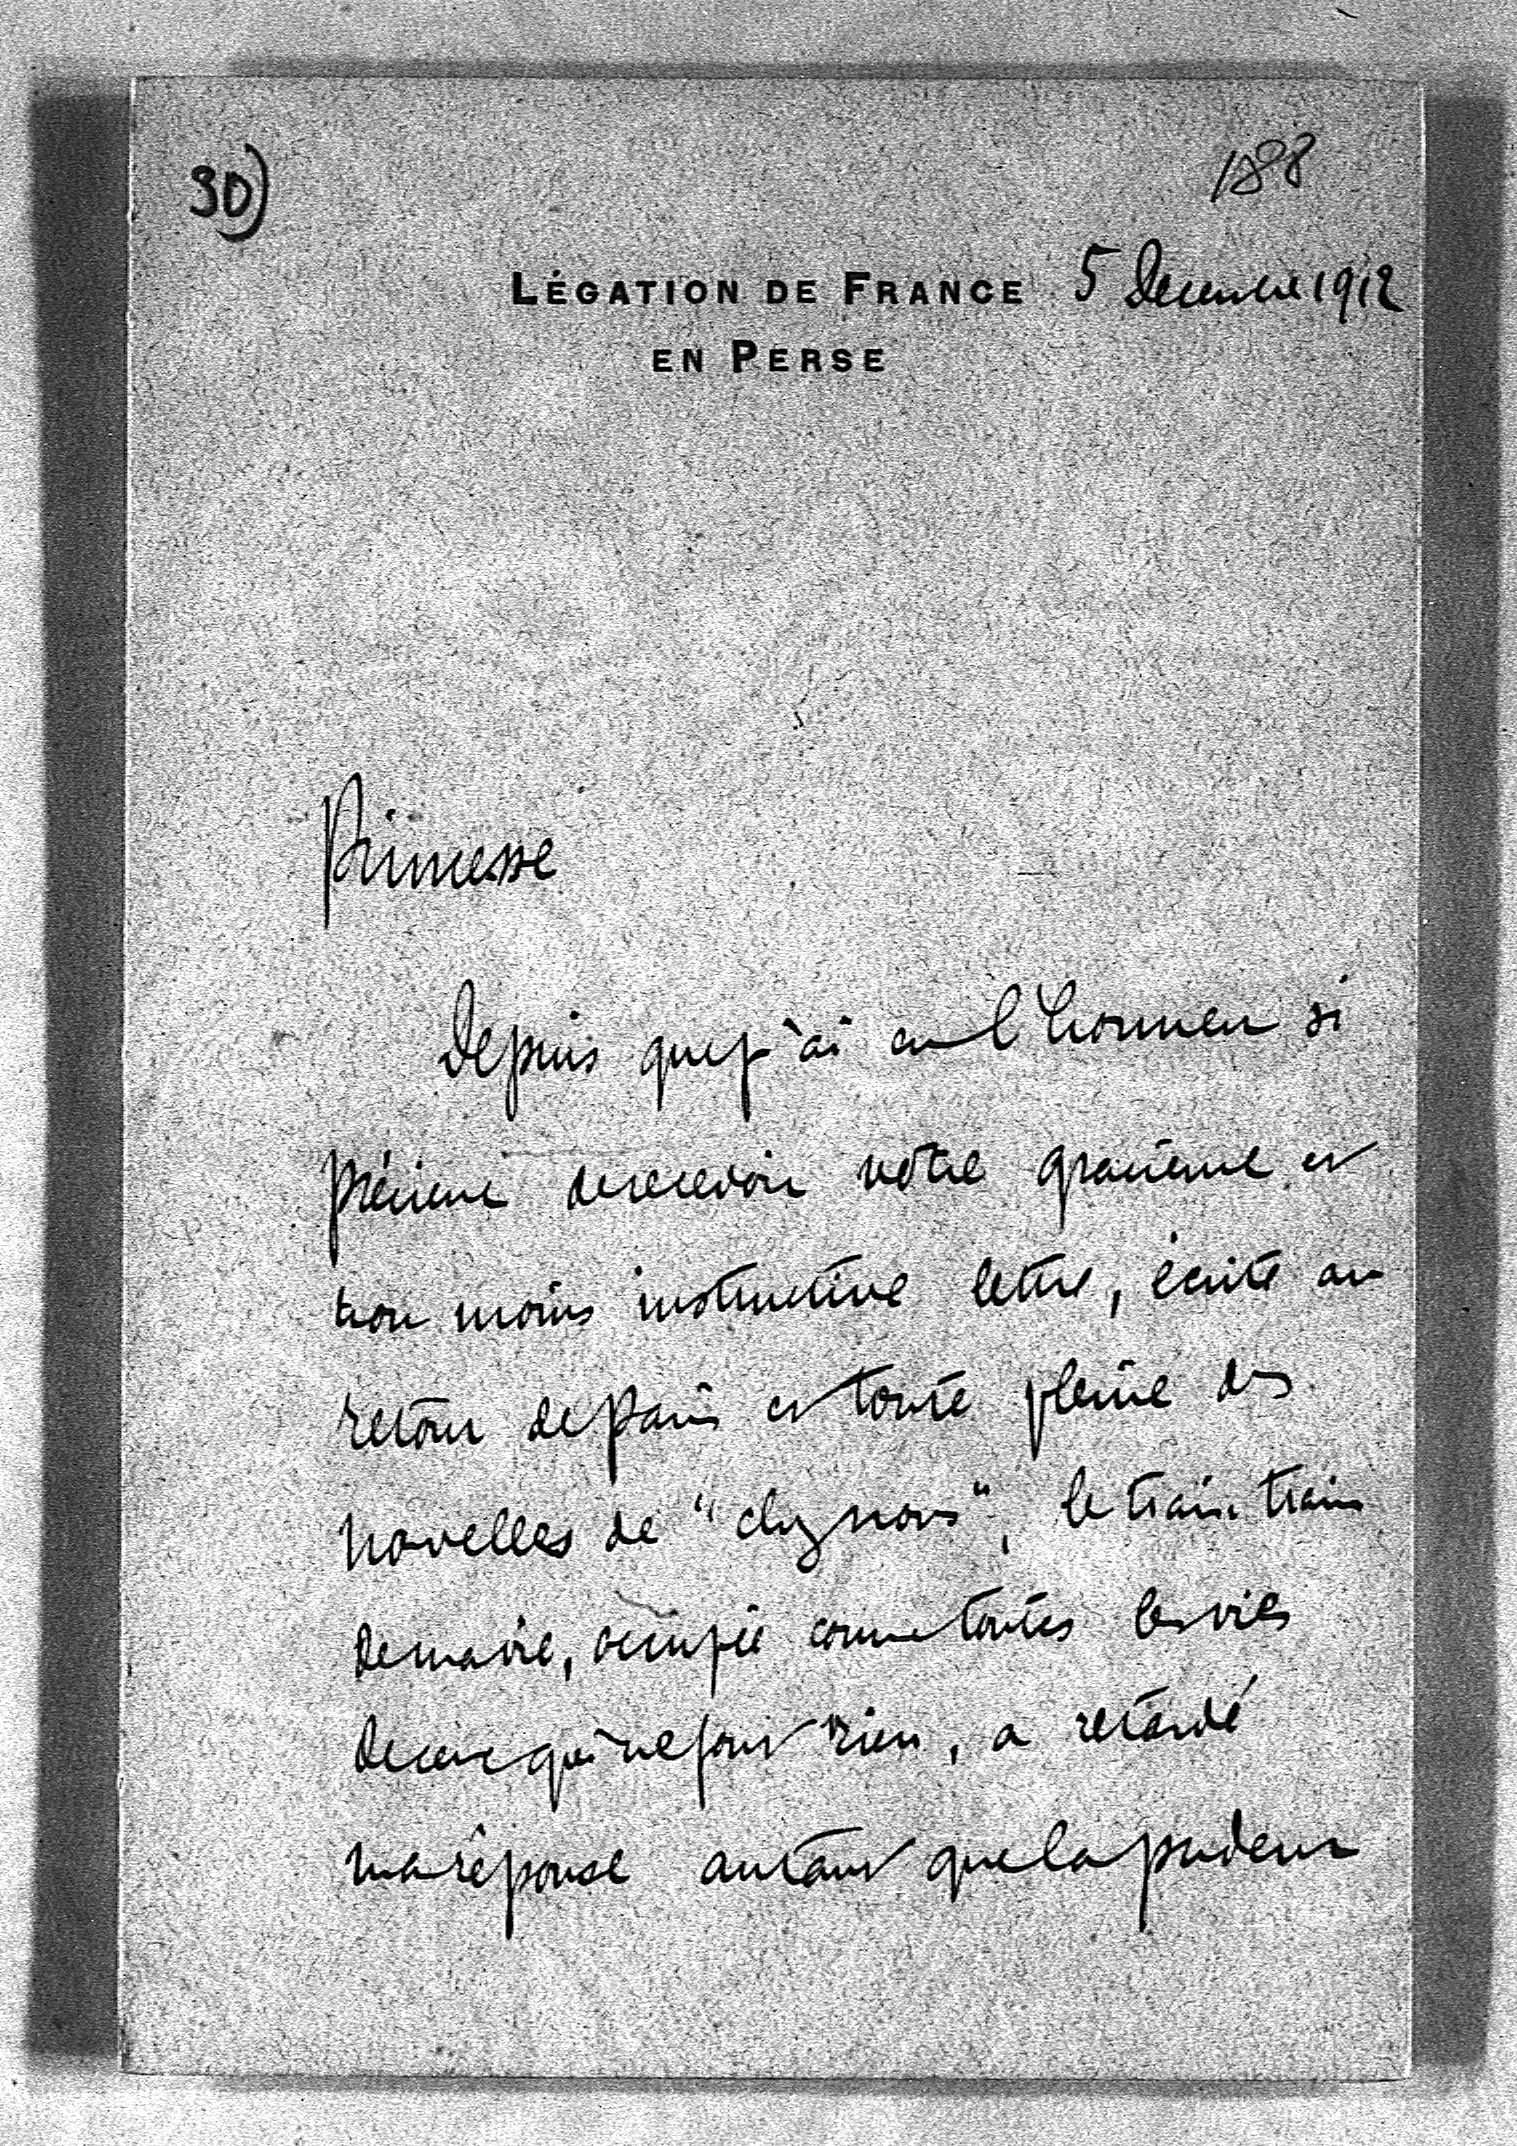 30)
188
LÉGATION DE FRANCE 5 Décembre 1912
EN PERSE
Princesse
Depuis que j'ai eu l'honneur si
précieux de recevoir votre gracieuse et
non moins instructive lettre, écrite au
retour de Paris et toute pleine des
novelles de "chez nous", le train train
de ma vie, occupée comme toutes les vies
de ceux qui ne font rien, a retardé
ma réponse autant que la pudeur